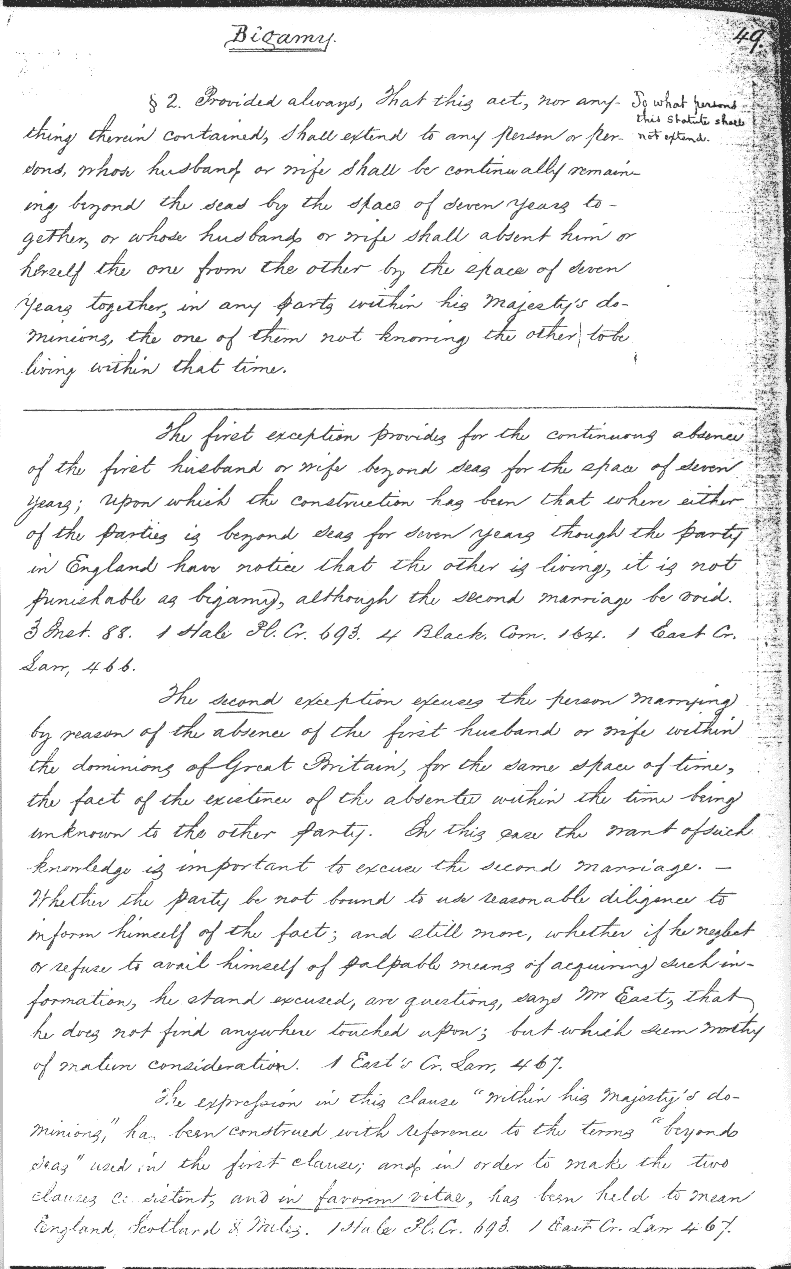 Bigamy.
49.
§ 2. Provided always, That this act, nor any-
thing therein contained, shall extend to any person or per-
sons, whose husband, or wife shall be continually remain-
ing beyond the seas by the space of seven years to-
gether, or whose husband, or wife shall absent him or
herself the one from the other by the space of seven
years together, in any parts within his Majesty's do-
minions, the one of them not knowing the other to be
living within that time.
To what persons
this statute shall
not extend.
The first exception provides for the continuous absence
of the first husband or wife beyond seas for the space of seven
years; upon which the construction has been that where either
of the parties is beyond seas for seven years though the party
in England have notice that the other is living, it is not
punishable as bigamy, although the second marriage be void.
3 Inst. 88. 1 Hale Pl. Cr. 693. 4 Black. Com. 164. 1 East Cr.
Law, 466.
The second exception excuses the person marrying
by reason of the absence of the first husband or wife within
the dominions of Great Britain, for the same space of time,
the fact of the existence of the absentee within the time being
unknown to the other party. In this case the want of such
knowledge is important to excuse the second marriage. —
Whether the party be not bound to use reasonable diligence to
inform himself of the fact; and still more, whether if he neglect
or refuse to avail himself of palpable means of acquiring such in-
formation, he stand excused, are questions, says Mr East, that
he does not find anywhere touched upon; but which seem worthy
of mature consideration. 1 East's Cr. Law, 467.
The expression in this clause "within his Majesty's do-
minions," has been construed with reference to the terms "beyond
seas" used in the first clause; and in order to make the two
clauses consistent, and in favorem vitae, has been held to mean
England, Scotland & Wales. 1 Hale Pl. Cr. 693. 1 East Cr. Law 467.